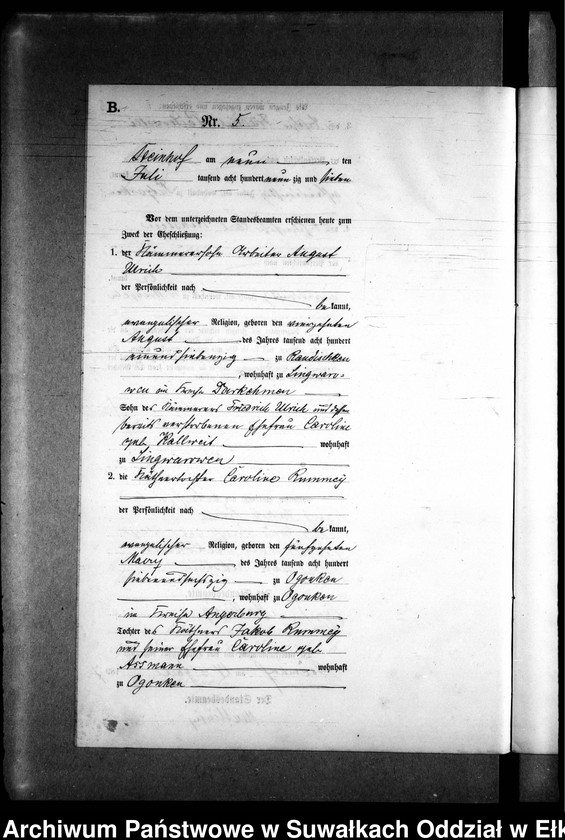 B.
Nr. 5.
Steinhof am neun ten
Juli tausend acht hundert neun zig und sieben
Vor dem unterzeichneten Standesbeamten erschienen heute zum
Zweck der Eheschließung:
1. der Kämmerersohn Arbeiter August
Ulrich
der Persönlichkeit nach
be kannt,
evangelischer Religion, geboren den vierzehnten
August des Jahres tausend acht hundert
einundsiebenzig zu
, wohnhaft zu Lingwaro-
wen im Kreise Darkehmen
Sohn des Kämmerers Friedrich Ulrich und dessen
bereits verstorbenen Ehefrau Caroline
geb. Kallweit wohnhaft
zu Lingwarowen
2. die Käthnertochter Caroline Rummey
der Persönlichkeit nach
be kannt,
evangelischer Religion, geboren den fünfzehnten
März des Jahres tausend acht hundert
siebenundsechszig zu Ogonken
, wohnhaft zu Ogonken
im Kreise Angerburg
Tochter des Käthners Jakob Rummey
und seiner Ehefrau Caroline geb.
Assmann wohnhaft
zu Ogonken
Der Standesbeamte.
Archiwum Państwowe w Suwałkach Oddział w Ełk